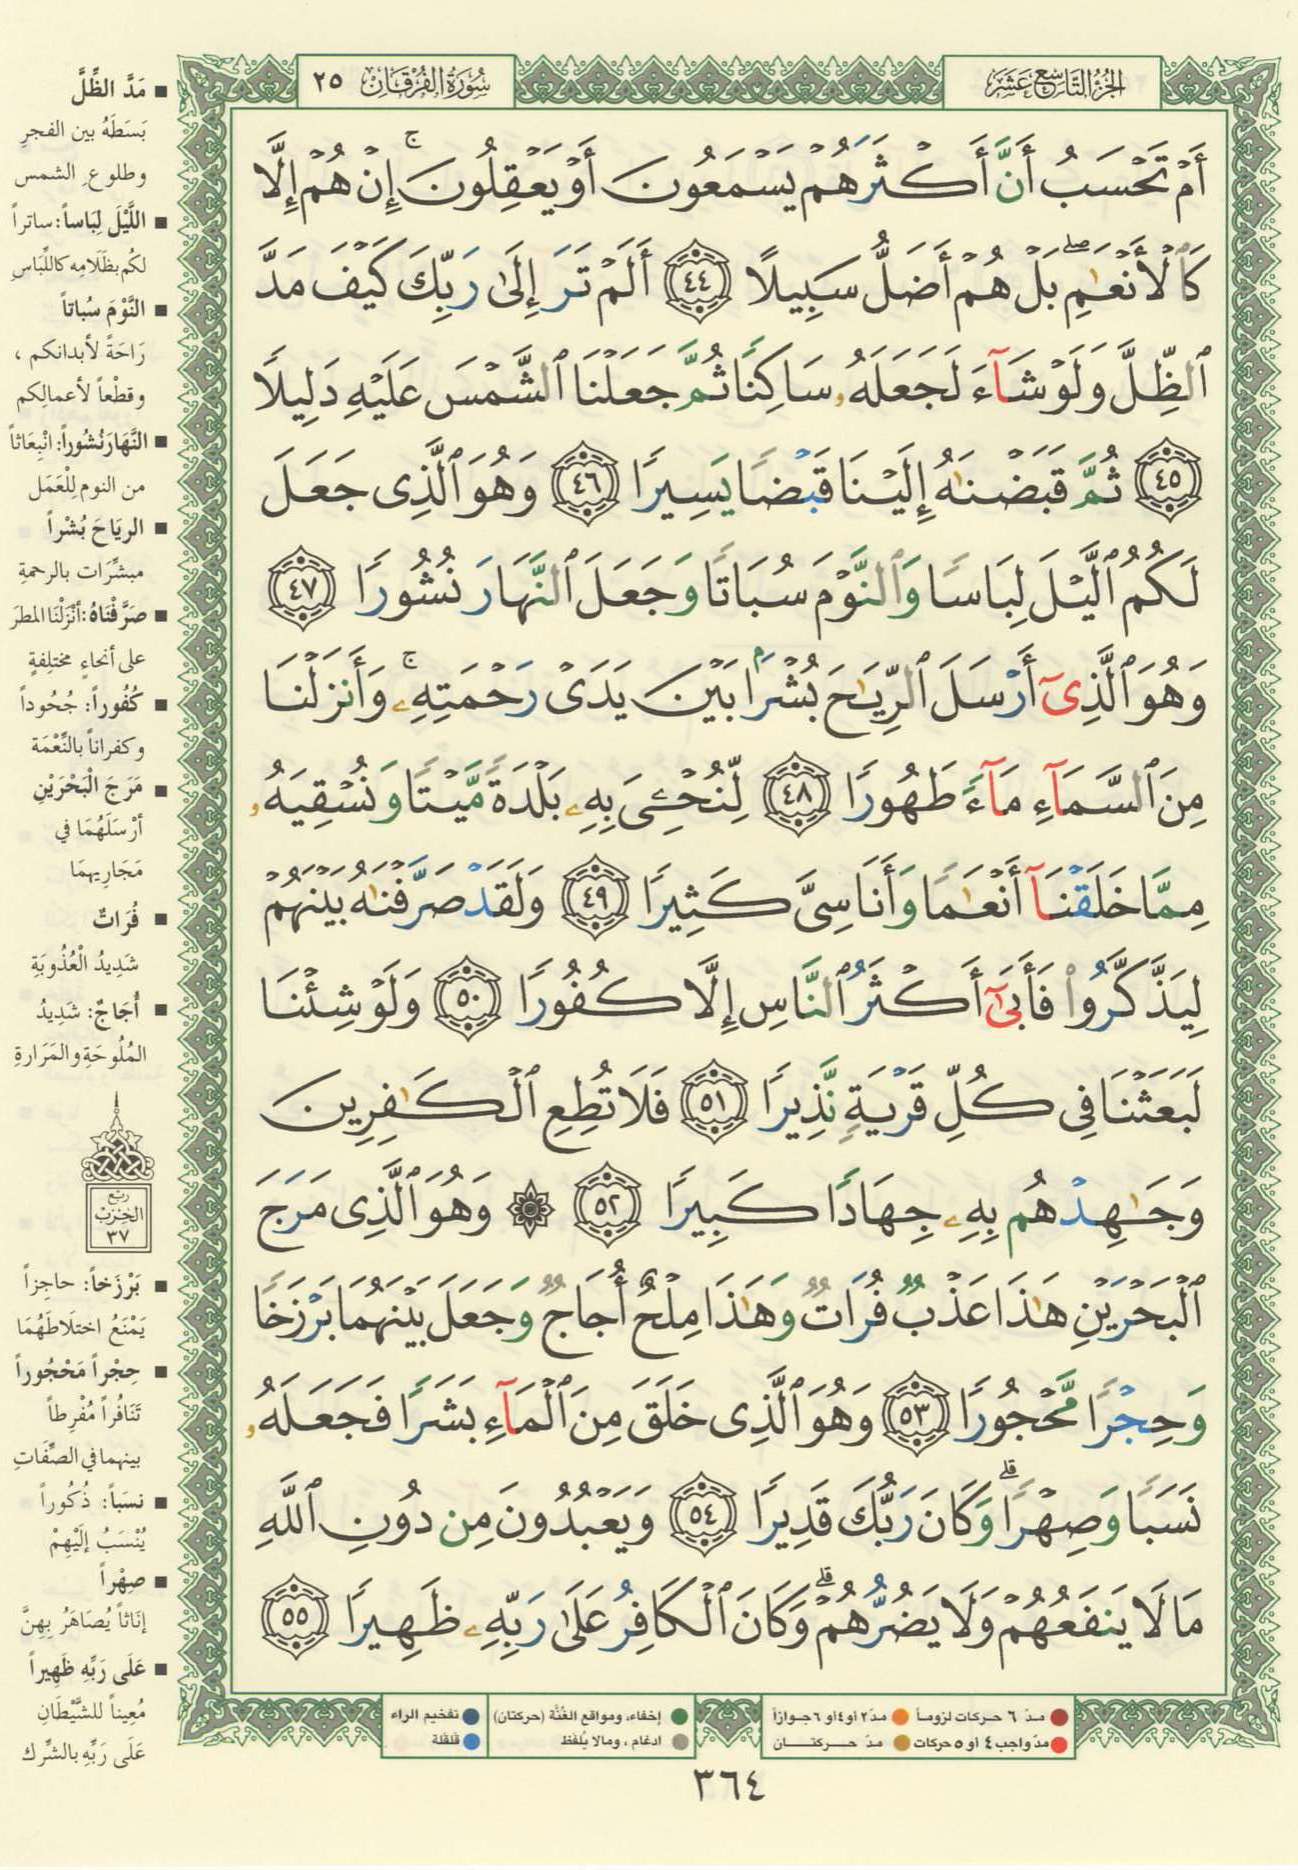 الجزء التاسع عشر
سورة الفرقان ٢٥
أَمْ تَحْسَبُ أَنَّ أَكْثَرَهُمْ يَسْمَعُونَ أَوْ يَعْقِلُونَ ۚ إِنْ هُمْ إِلَّا
كَٱلْأَنْعَٰمِ ۖ بَلْ هُمْ أَضَلُّ سَبِيلًا ٤٤ أَلَمْ تَرَ إِلَىٰ رَبِّكَ كَيْفَ مَدَّ
ٱلظِّلَّ وَلَوْ شَآءَ لَجَعَلَهُۥ سَاكِنًا ثُمَّ جَعَلْنَا ٱلشَّمْسَ عَلَيْهِ دَلِيلًا
٤٥ ثُمَّ قَبَضْنَٰهُ إِلَيْنَا قَبْضًا يَسِيرًا ٤٦ وَهُوَ ٱلَّذِى جَعَلَ
لَكُمُ ٱلَّيْلَ لِبَاسًا وَٱلنَّوْمَ سُبَاتًا وَجَعَلَ ٱلنَّهَارَ نُشُورًا ٤٧
وَهُوَ ٱلَّذِىٓ أَرْسَلَ ٱلرِّيَٰحَ بُشْرًۢا بَيْنَ يَدَىْ رَحْمَتِهِۦ ۚ وَأَنزَلْنَا
مِنَ ٱلسَّمَآءِ مَآءً طَهُورًا ٤٨ لِّنُحْـِۧىَ بِهِۦ بَلْدَةً مَّيْتًا وَنُسْقِيَهُۥ
مِمَّا خَلَقْنَآ أَنْعَٰمًا وَأَنَاسِىَّ كَثِيرًا ٤٩ وَلَقَدْ صَرَّفْنَٰهُ بَيْنَهُمْ
لِيَذَّكَّرُوا۟ فَأَبَىٰٓ أَكْثَرُ ٱلنَّاسِ إِلَّا كُفُورًا ٥٠ وَلَوْ شِئْنَا
لَبَعَثْنَا فِى كُلِّ قَرْيَةٍ نَّذِيرًا ٥١ فَلَا تُطِعِ ٱلْكَٰفِرِينَ
وَجَٰهِدْهُم بِهِۦ جِهَادًا كَبِيرًا ٥٢ ۞ وَهُوَ ٱلَّذِى مَرَجَ
ٱلْبَحْرَيْنِ هَٰذَا عَذْبٌ فُرَاتٌ وَهَٰذَا مِلْحٌ أُجَاجٌ وَجَعَلَ بَيْنَهُمَا بَرْزَخًا
وَحِجْرًا مَّحْجُورًا ٥٣ وَهُوَ ٱلَّذِى خَلَقَ مِنَ ٱلْمَآءِ بَشَرًا فَجَعَلَهُۥ
نَسَبًا وَصِهْرًا ۗ وَكَانَ رَبُّكَ قَدِيرًا ٥٤ وَيَعْبُدُونَ مِن دُونِ ٱللَّهِ
مَا لَا يَنفَعُهُمْ وَلَا يَضُرُّهُمْ ۗ وَكَانَ ٱلْكَافِرُ عَلَىٰ رَبِّهِۦ ظَهِيرًا ٥٥
■ مَدَّ الظِّلَّ
بَسَطَهُ بين الفجرِ
وطلوعِ الشمس
■ اللَّيْلَ لِبَاساً: ساتراً
لكُم بظَلَامِه كاللِّبَاسِ
■ النَّوْمَ سُباتاً
رَاحَةً لأبدانكم ،
وقطْعاً لأعمالِكم
■ النَّهَارَ نُشُوراً: انْبِعَاثاً
من النوم لِلْعَمَل
■ الريَاحَ بُشْراً
مبشِّرَات بالرحمةِ
■ صَرَّفْنَاهُ: أنْزَلْنَا المطرَ
على أنحاءٍ مختلِفةٍ
■ كُفُوراً: جُحُوداً
وكفراناً بالنِّعْمَة
■ مَرَجَ الْبَحْرَيْنِ
أرْسَلَهُمَا في
مَجَارِيهمَا
■ فُرَاتٌ
شَدِيدُ الْعُذُوبَةِ
■ أُجَاجٌ: شَدِيدُ
المُلُوحَةِ والمَرَارةِ
ربع
الحزب
٣٧
■ بَرْزَخاً: حاجزاً
يَمْنَعُ اختلَاطَهُمَا
■ حِجْراً مَحْجُوراً
تَنَافُراً مُفْرِطاً
بينهما في الصِّفَاتِ
■ نسَباً: ذُكُوراً
يُنْسَبُ إلَيْهِمْ
■ صِهْراً
إنَاثاً يُصَاهَرُ بِهِنَّ
■ عَلَى رَبِّهِ ظَهِيراً
مُعِيناً للشَّيْطَانِ
عَلَى رَبِّهِ بالشِّرك
مدّ ٦ حركات لزوماً مدّ ٢ أو ٤ أو ٦ جوازاً
مدّ واجب ٤ أو ٥ حركات مدّ حركتان
إخفاء، ومواقع الغُنَّة (حركتان)
ادغام ، ومالا يُلفَظ
تفخيم الراء
قلقلة
٣٦٤